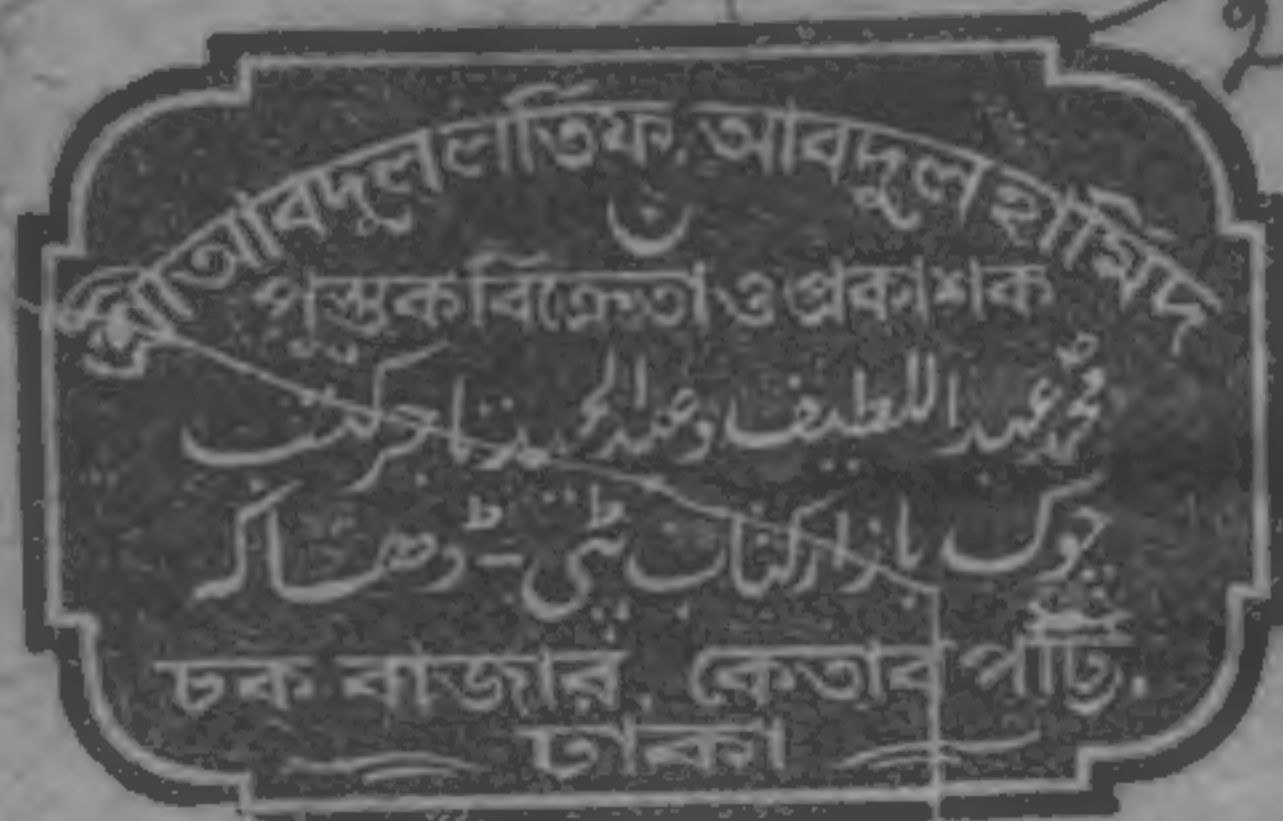 শ্রী আবদুল লতিফ. আবদুল হামিদ
পুস্তক বিক্রেতা ও প্রকাশক
محمد عبد اللطيف وعبد الحميد تاجر كتب
چوک بازار کتاب پٹی - ڈھاکہ
চক বাজার. কেতাব পট্টি.
ঢাকা